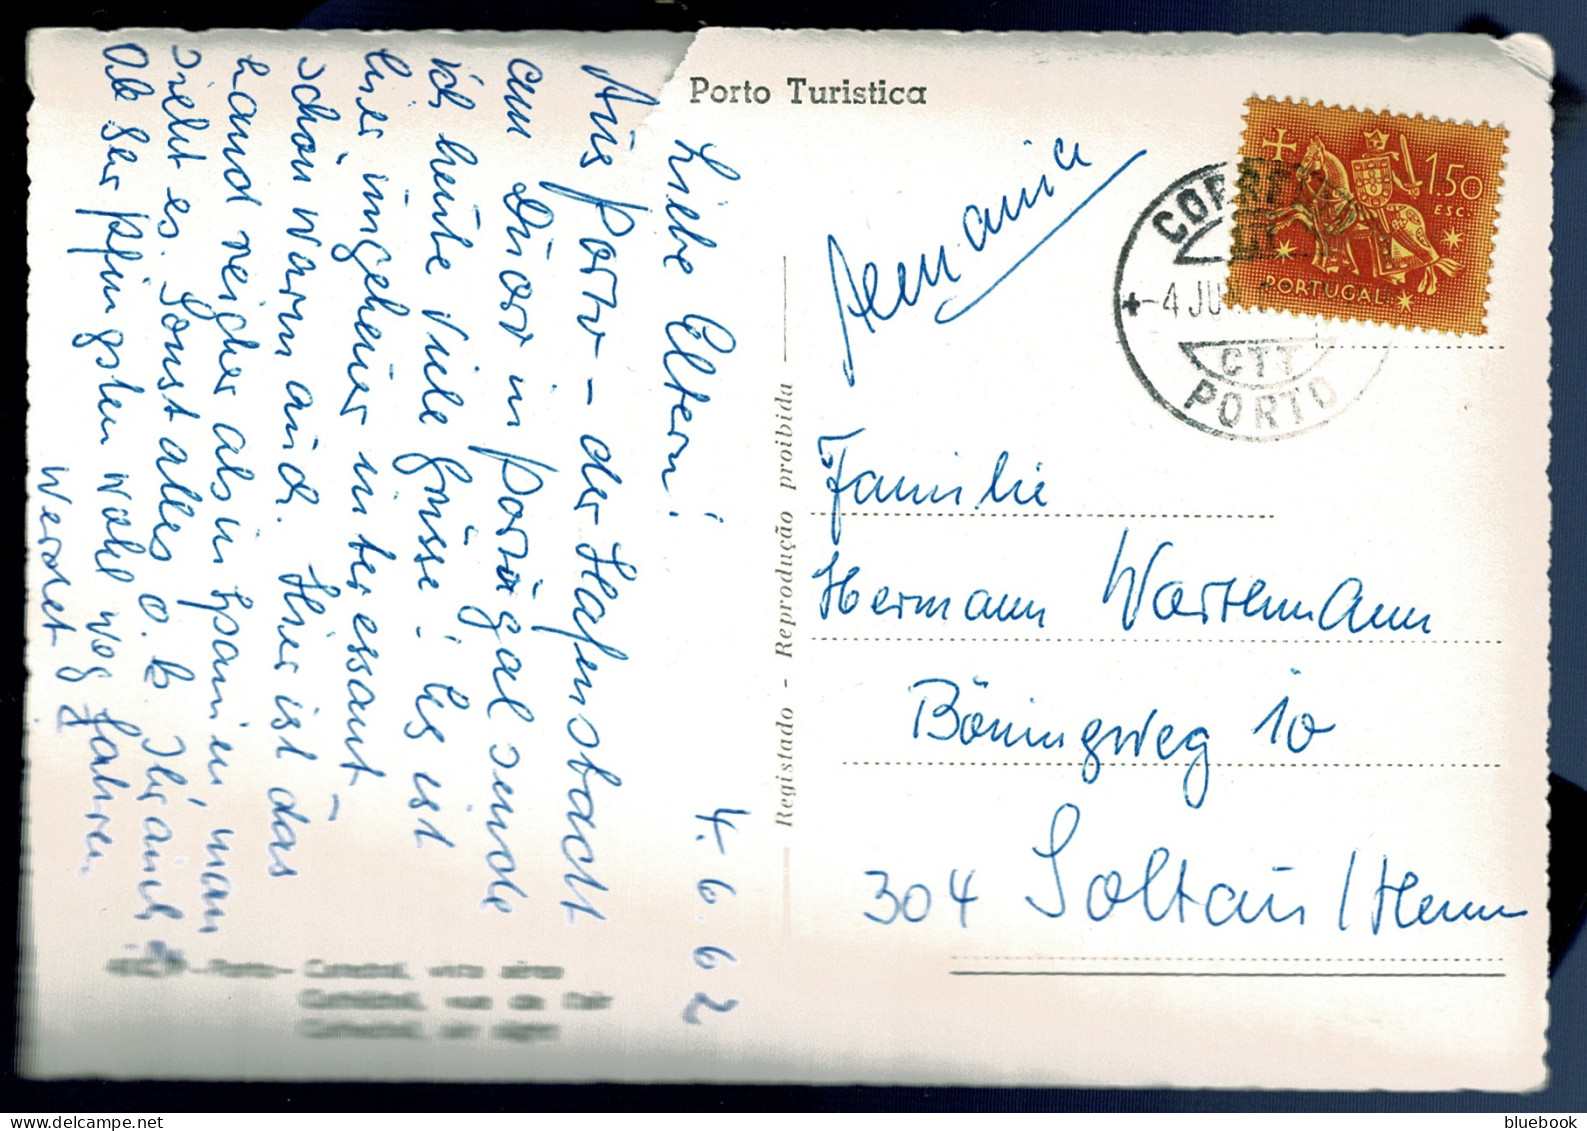 Porto Turistica
4. 6. 62
Liebe Eltern!
Aus Porto – der Hafenstadt
am Duoro in Portugal sende
ich heute viele Grüsse! Es ist
hier ungeheuer interessant –
schön warm auch. Hier ist das
Land reicher als in Spanien, man
sieht es. Sonst alles o.B. Ihr auch?
Ob Ihr Pfingsten wohl weg fahren
werdet?
Porto - Catedral, vista aérea
Registado - Reprodução proibida
CORREIOS
-4 JUN.
CTT
PORTO
1.50
ESC.
PORTUGAL
Familie
Hermann
Böningweg 10
304 Soltau / Hann
bluebook